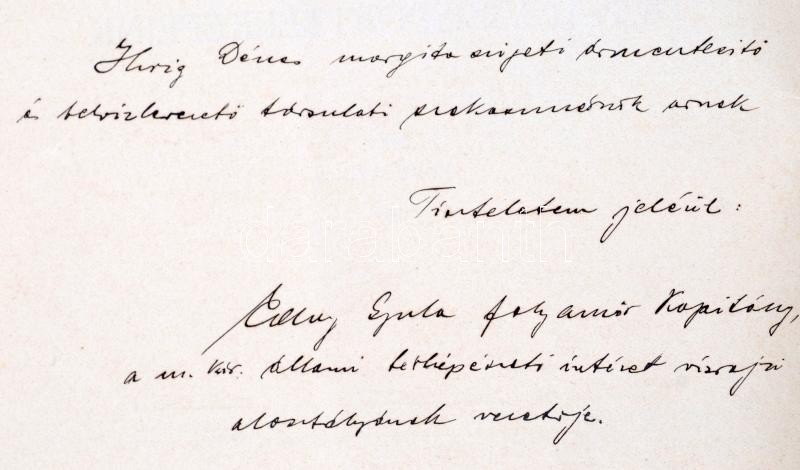 Ihrig Dénes margitaszigeti ármentesitő
és belvizlevezető társulati szakaszmérnök urnak
Tiszteletem jeléül:
Gyula folyamőr kapitány,
a m. kir. állami térképészeti intézet vizrajzi
alosztályának vezetője.